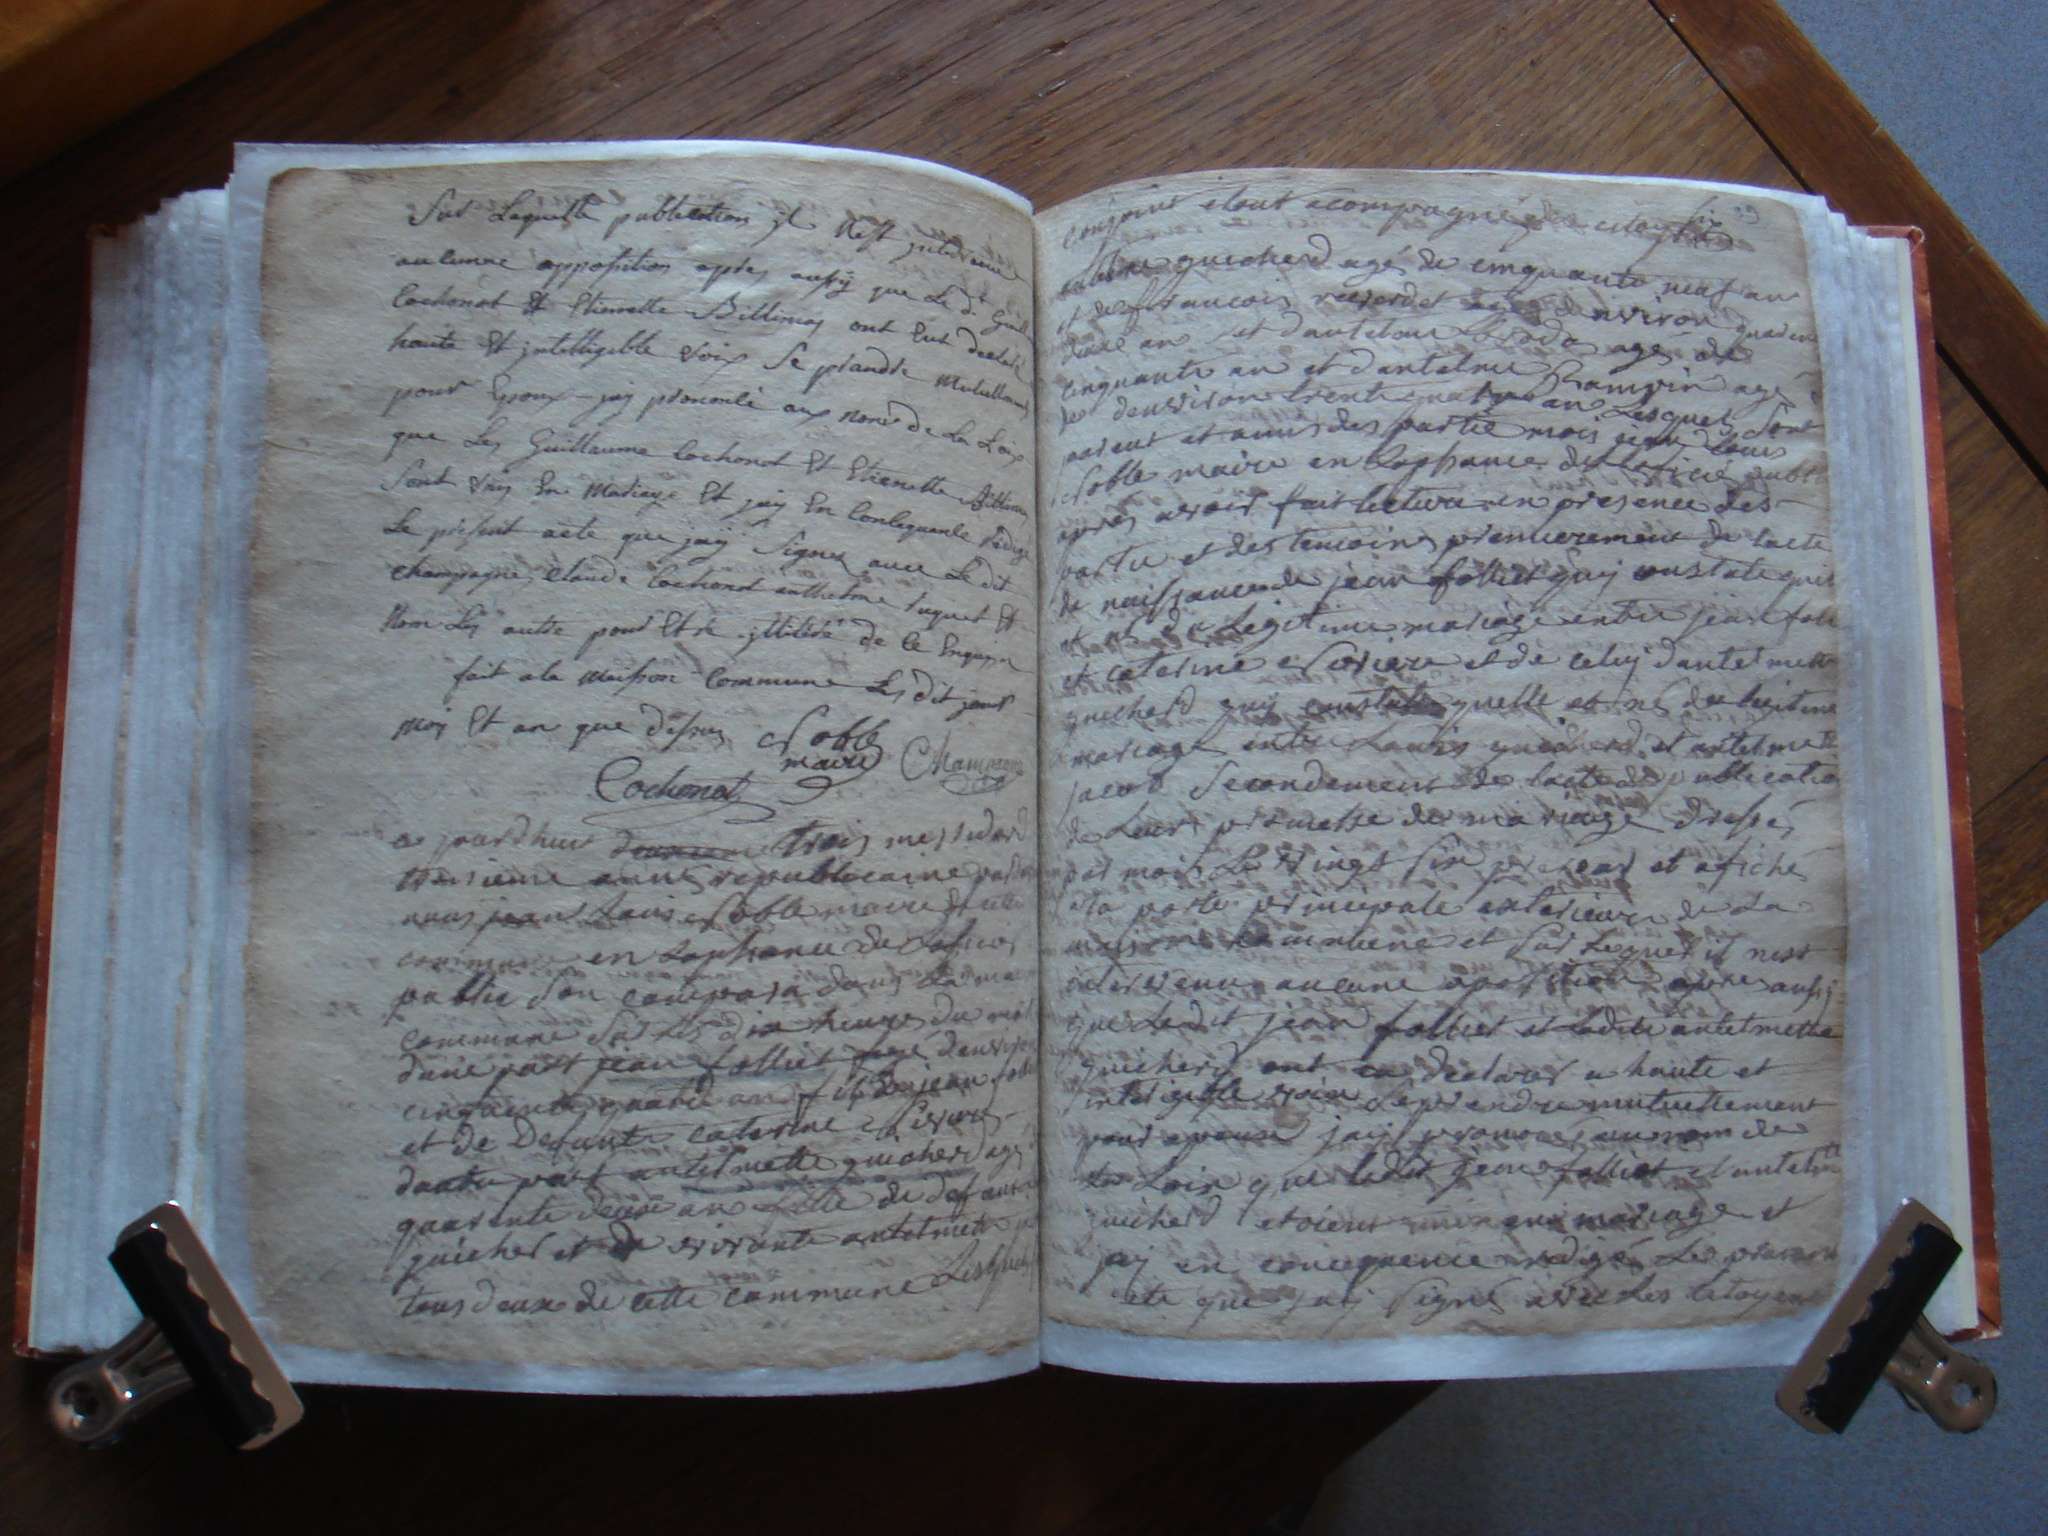 Sur Laquelle publication il Nest intervenu
aucunne opposition aptes ausÿ que Le dt Guill
Cochonat Et Etiennette Billimas ont Eut declaré
haute Et intelligible voix Se prandre Mutuellement
pour Epoux jay prononcé aux nom de La Loix
que Les Guillaume Cochonat Et Etienette Billimas
Sont uny En Mariage Et jay En Consequance Redigé
Le present acte que jay Signez avec Le dit
Champagne, Claude Cochonat anthelme tuquet Et
Non Les autre pour Etre illiteré de Ce Enquis
fait a la Maison Commune Les dit jour
Moy Et an que desus Noble
maire Champagne
Cochonat
au jourdhuit trois messidord
troisieme anné republicaine par
nous jean Louis Noble maire de cette
commune en Labsance de Lofficié
public Son comparu dans La mai
commune Sur les dix heures du mat
dune part jean folliet age denviron
cinquante quatre an fils de jean foll
et de Defunte caterine Niviere
dautre part antelmette guicherd agé
quarente deux an fille de defunt
guicher et de vivante antelmette
tous deux de cette commune Lesquel
conjoint etant acompagné des citoyen 29
guicherd agé de cinquante neuf an
et de francois reverdet agé denviron quarente
deux an et dantelme agé de
cinquante an et dantelme Rampin agé
de denviron trente quatre an Lesquel Sont
parent et amis des partie mois jean Louis
Noble maire en Labsance de Loficié public
apres avoir fait lecture en presence des
partie et des temoins premierement de lacte
de naissance de jean folliet quy constate quil
et né du Legitime mariage entre jean foll
et caterine Niviere et de celuy dantelmette
guicherd quy constate quelle et né de legitime
mariage entre Louis guicherd et antelmette
jacob Secondement de lacte de publication
de Leur promesse de mariage dressé
par mois Le vingt Six prereal et afiché
a la porte principale exterieure de La
maison commune et Sur Lequel il nest
intervenu aucune oposition apres ausÿ
que Ledit jean folliet et ladite antelmette
guicherd ont eu declaré a haute et
inteligible voix Se prendre mutuellement
pour epoux jay prononcé au nom de
La Loix que ledit jean folliet et antelmette
guicherd etoient uni en mariage et
jay en concequence redigé Le present
acte que jay Signé avec Les citoyen